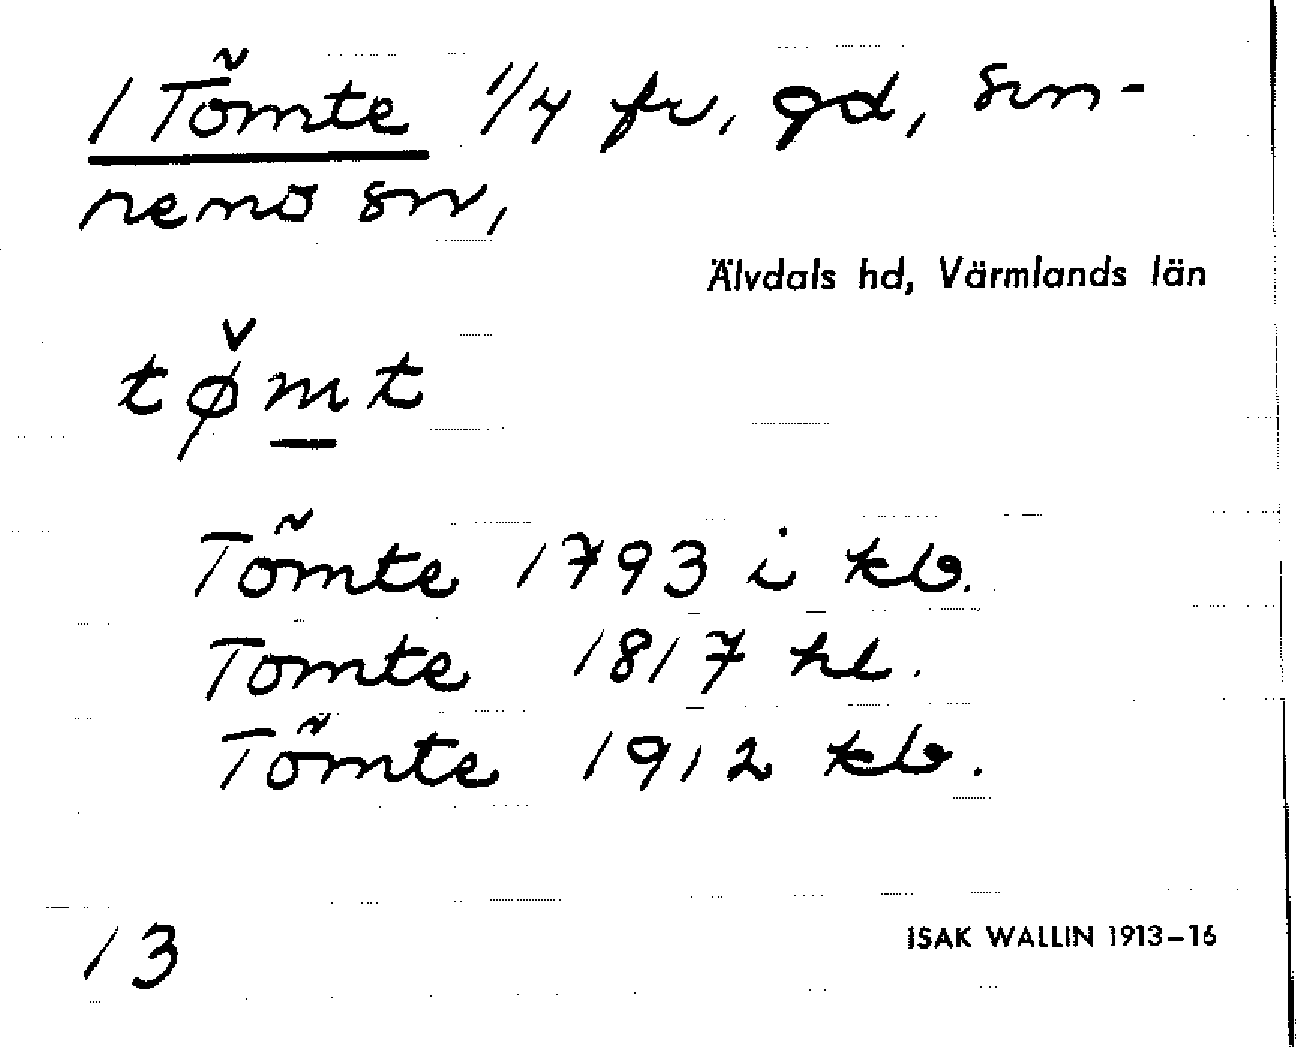 1 Tömte 1/4 fr, gd, Sun-
nemo sn,
Älvdals hd, Värmlands län
tø̌mt
Tömte 1793 i kb.
Tomte 1817 hl.
Tömte 1912 kb.
13
ISAK WALLIN 1913–16